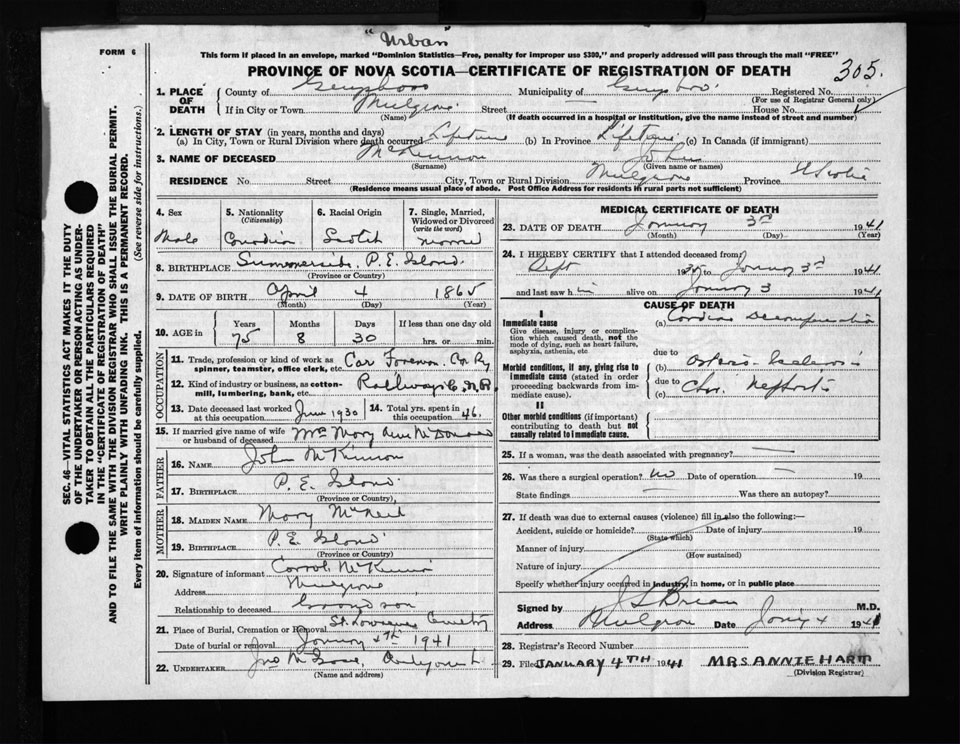 "Urban"
FORM 6
This form if placed in an envelope, marked "Dominion Statistics—Free, penalty for improper use $300," and properly addressed will pass through the mail "FREE"
PROVINCE OF NOVA SCOTIA—CERTIFICATE OF REGISTRATION OF DEATH
305.
SEC. 46—VITAL STATISTICS ACT MAKES IT THE DUTY
OF THE UNDERTAKER OR PERSON ACTING AS UNDER-
TAKER TO OBTAIN ALL THE PARTICULARS REQUIRED
IN THE "CERTIFICATE OF REGISTRATION OF DEATH"
AND TO FILE THE SAME WITH THE DIVISION REGISTRAR WHO SHALL ISSUE THE BURIAL PERMIT.
WRITE PLAINLY WITH UNFADING INK. THIS IS A PERMANENT RECORD.
Every item of information should be carefully supplied. (See reverse side for instructions.)
1. PLACE OF DEATH County of Guysboro Municipality of Guysboro Registered No.
(For use of Registrar General only)
If in City or Town Mulgrave Street House No.
(Name) (If death occurred in a hospital or institution, give the name instead of street and number)
2. LENGTH OF STAY (in years, months and days)
(a) In City, Town or Rural Division where death occurred Lifetime (b) In Province Lifetime (c) In Canada (if immigrant)
3. NAME OF DECEASED McKinnon John
(Surname) (Given name or names)
RESIDENCE No Street City, Town or Rural Division Mulgrave Province N Scotia
(Residence means usual place of abode. Post Office Address for residents in rural parts not sufficient)
4. Sex Male
5. Nationality (Citizenship) Canadian
6. Racial Origin Scotch
7. Single, Married, Widowed or Divorced (write the word) Married
8. BIRTHPLACE Summerside, P. E. Island
(Province or Country)
9. DATE OF BIRTH April 4 1865
(Month) (Day) (Year)
10. AGE in Years Months Days If less than one day old
75 8 30 hrs. or min.
OCCUPATION
11. Trade, profession or kind of work as spinner, teamster, office clerk, etc. Car Foreman
12. Kind of industry or business, as cotton-mill, lumbering, bank, etc. Railway C.N.R.
13. Date deceased last worked at this occupation June 1930
14. Total yrs. spent in this occupation 46.
15. If married give name of wife or husband of deceased Mrs Mary Ann McDonald
FATHER
16. NAME John McKinnon
17. BIRTHPLACE P. E. Island
(Province or Country)
MOTHER
18. MAIDEN NAME Mary McNeil
19. BIRTHPLACE P. E. Island
(Province or Country)
20. Signature of informant Carrol McKinnon
Address Mulgrave
Relationship to deceased Grandson
21. Place of Burial, Cremation or Removal St. Lawrence Cemetery
Date of burial or removal January 4th 1941
22. UNDERTAKER
(Name and address)
MEDICAL CERTIFICATE OF DEATH
23. DATE OF DEATH January 3rd 1941
(Month) (Day) (Year)
24. I HEREBY CERTIFY that I attended deceased from
Sept to January 3rd 1941
and last saw him alive on January 3 1941
CAUSE OF DEATH
I
Immediate cause (a) Cardiac Decompensation
Give disease, injury or complication which caused death, not the mode of dying, such as heart failure, asphyxia, asthenia, etc
due to
Morbid conditions, if any, giving rise to immediate cause (stated in order proceeding backwards from immediate cause). (b) Arterio Sclerosis
due to
(c) Chr. Nephritis
II
Other morbid conditions (if important) contributing to death but not causally related to immediate cause.
25. If a woman, was the death associated with pregnancy? —
26. Was there a surgical operation? No Date of operation — 19
State findings — Was there an autopsy?
27. If death was due to external causes (violence) fill in also the following:—
Accident, suicide or homicide? Date of injury 19
(State which)
Manner of injury
(How sustained)
Nature of injury
Specify whether injury occurred in industry, in home, or in public place
Signed by M.D.
Address Mulgrave Date 4 1941
28. Registrar's Record Number
29. Filed JANUARY 4TH 1941 MRS ANNIE HART
(Division Registrar)